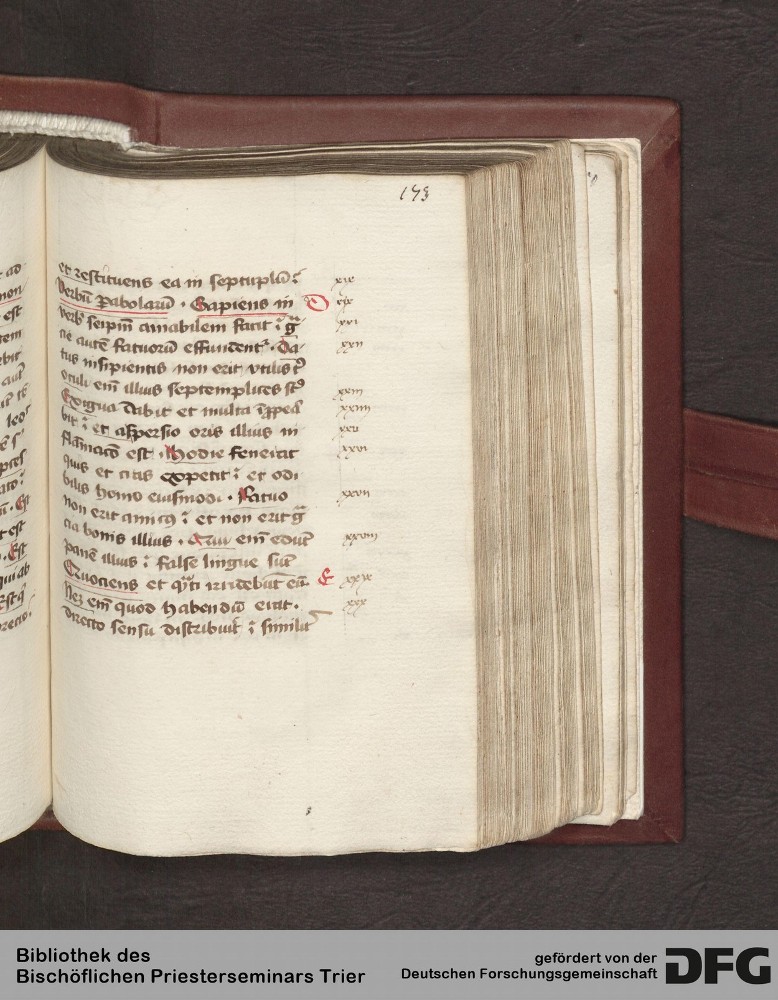 173
et restituens ea in septuplū
xix
Verbū Pabolarū · Sapiens in
D
xx
verb seipm amabilem facit
xxi
cie autē fatuorū effundent Da
xxii
tus insipientis non erit vtilis t
oculi em illius septemplices st
xxiii
Exigua dabit et multa
xxiiii
bit et aspersio oris illius in
xxv
flāmacō est · Hodie fenerat
xxvi
quis et cras expetit et odi
bilis homo eiusmodi · Fatuo
xxvii
non erit amicꝯ et non erit g
cia bonis illius · Qui em edūt
xxviii
panē illius false lingue sūt
Quociens et irridebūt eū
E
xxix
Nec em quod habendū erat ·
xxx
directo sensu distribuit similit
Bibliothek des
Bischöflichen Priesterseminars Trier
gefördert von der
Deutschen Forschungsgemeinschaft
DFG